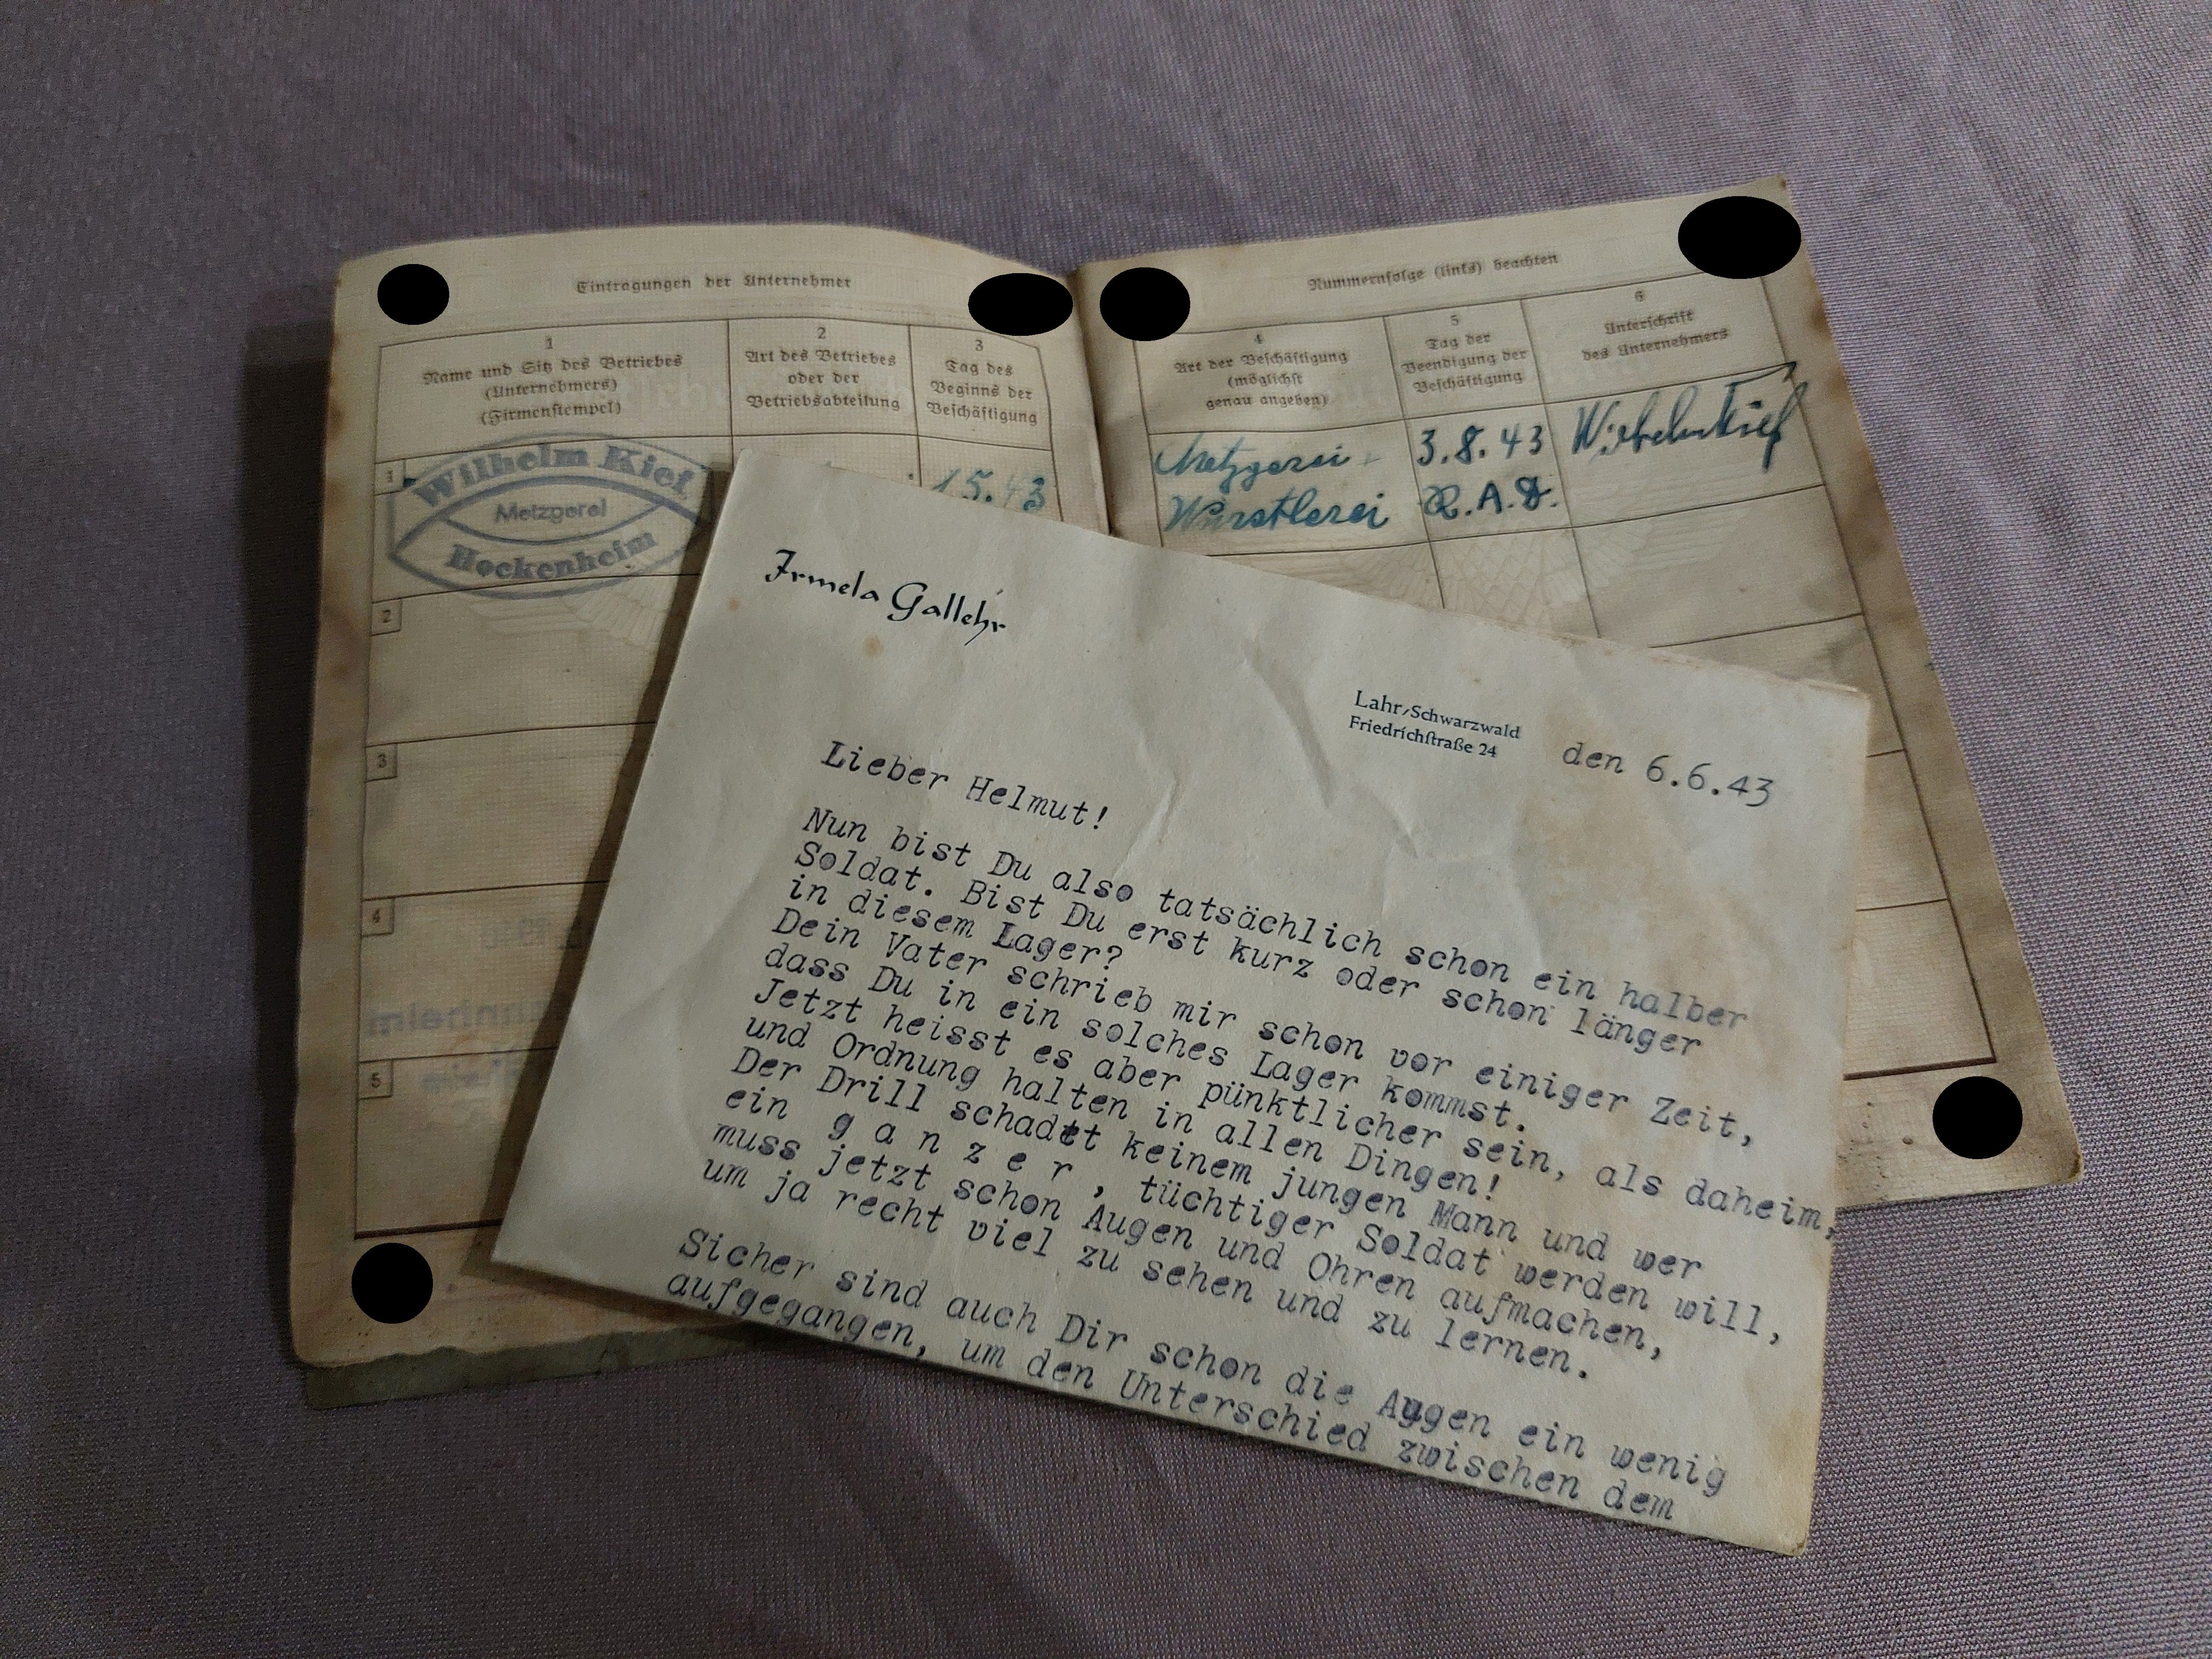 Eintragungen der Unternehmer
1
Name und Sitz des Betriebes
(Unternehmers)
(Firmenstempel)
2
Art des Betriebes
oder der
Betriebsabteilung
3
Tag des
Beginns der
Beschäftigung
1
Wilhelm Kief
Metzgerei
Hockenheim
1.5.43
2
3
4
5
Nummernfolge (links) beachten
4
Art der Beschäftigung
(möglichst
genau angeben)
5
Tag der
Beendigung der
Beschäftigung
6
Unterschrift
des Unternehmers
Metzgerei +
Wurstlerei
3.8.43
R.A.D.
Wilhelm Kief
Irmela Gallehr
Lahr/Schwarzwald
Friedrichſtraße 24
den 6.6.43
Lieber Helmut!
Nun bist Du also tatsächlich schon ein halber
Soldat. Bist Du erst kurz oder schon länger
in diesem Lager?
Dein Vater schrieb mir schon vor einiger Zeit,
dass Du in ein solches Lager kommst.
Jetzt heisst es aber pünktlicher sein, als daheim,
und Ordnung halten in allen Dingen!
Der Drill schadet keinem jungen Mann und wer
ein g a n z e r , tüchtiger Soldat werden will,
muss jetzt schon Augen und Ohren aufmachen,
um ja recht viel zu sehen und zu lernen.
Sicher sind auch Dir schon die Augen ein wenig
aufgegangen, um den Unterschied zwischen dem